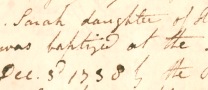 . Sarah daughter of
was baptized at the
Dec. 3d 1738 by the